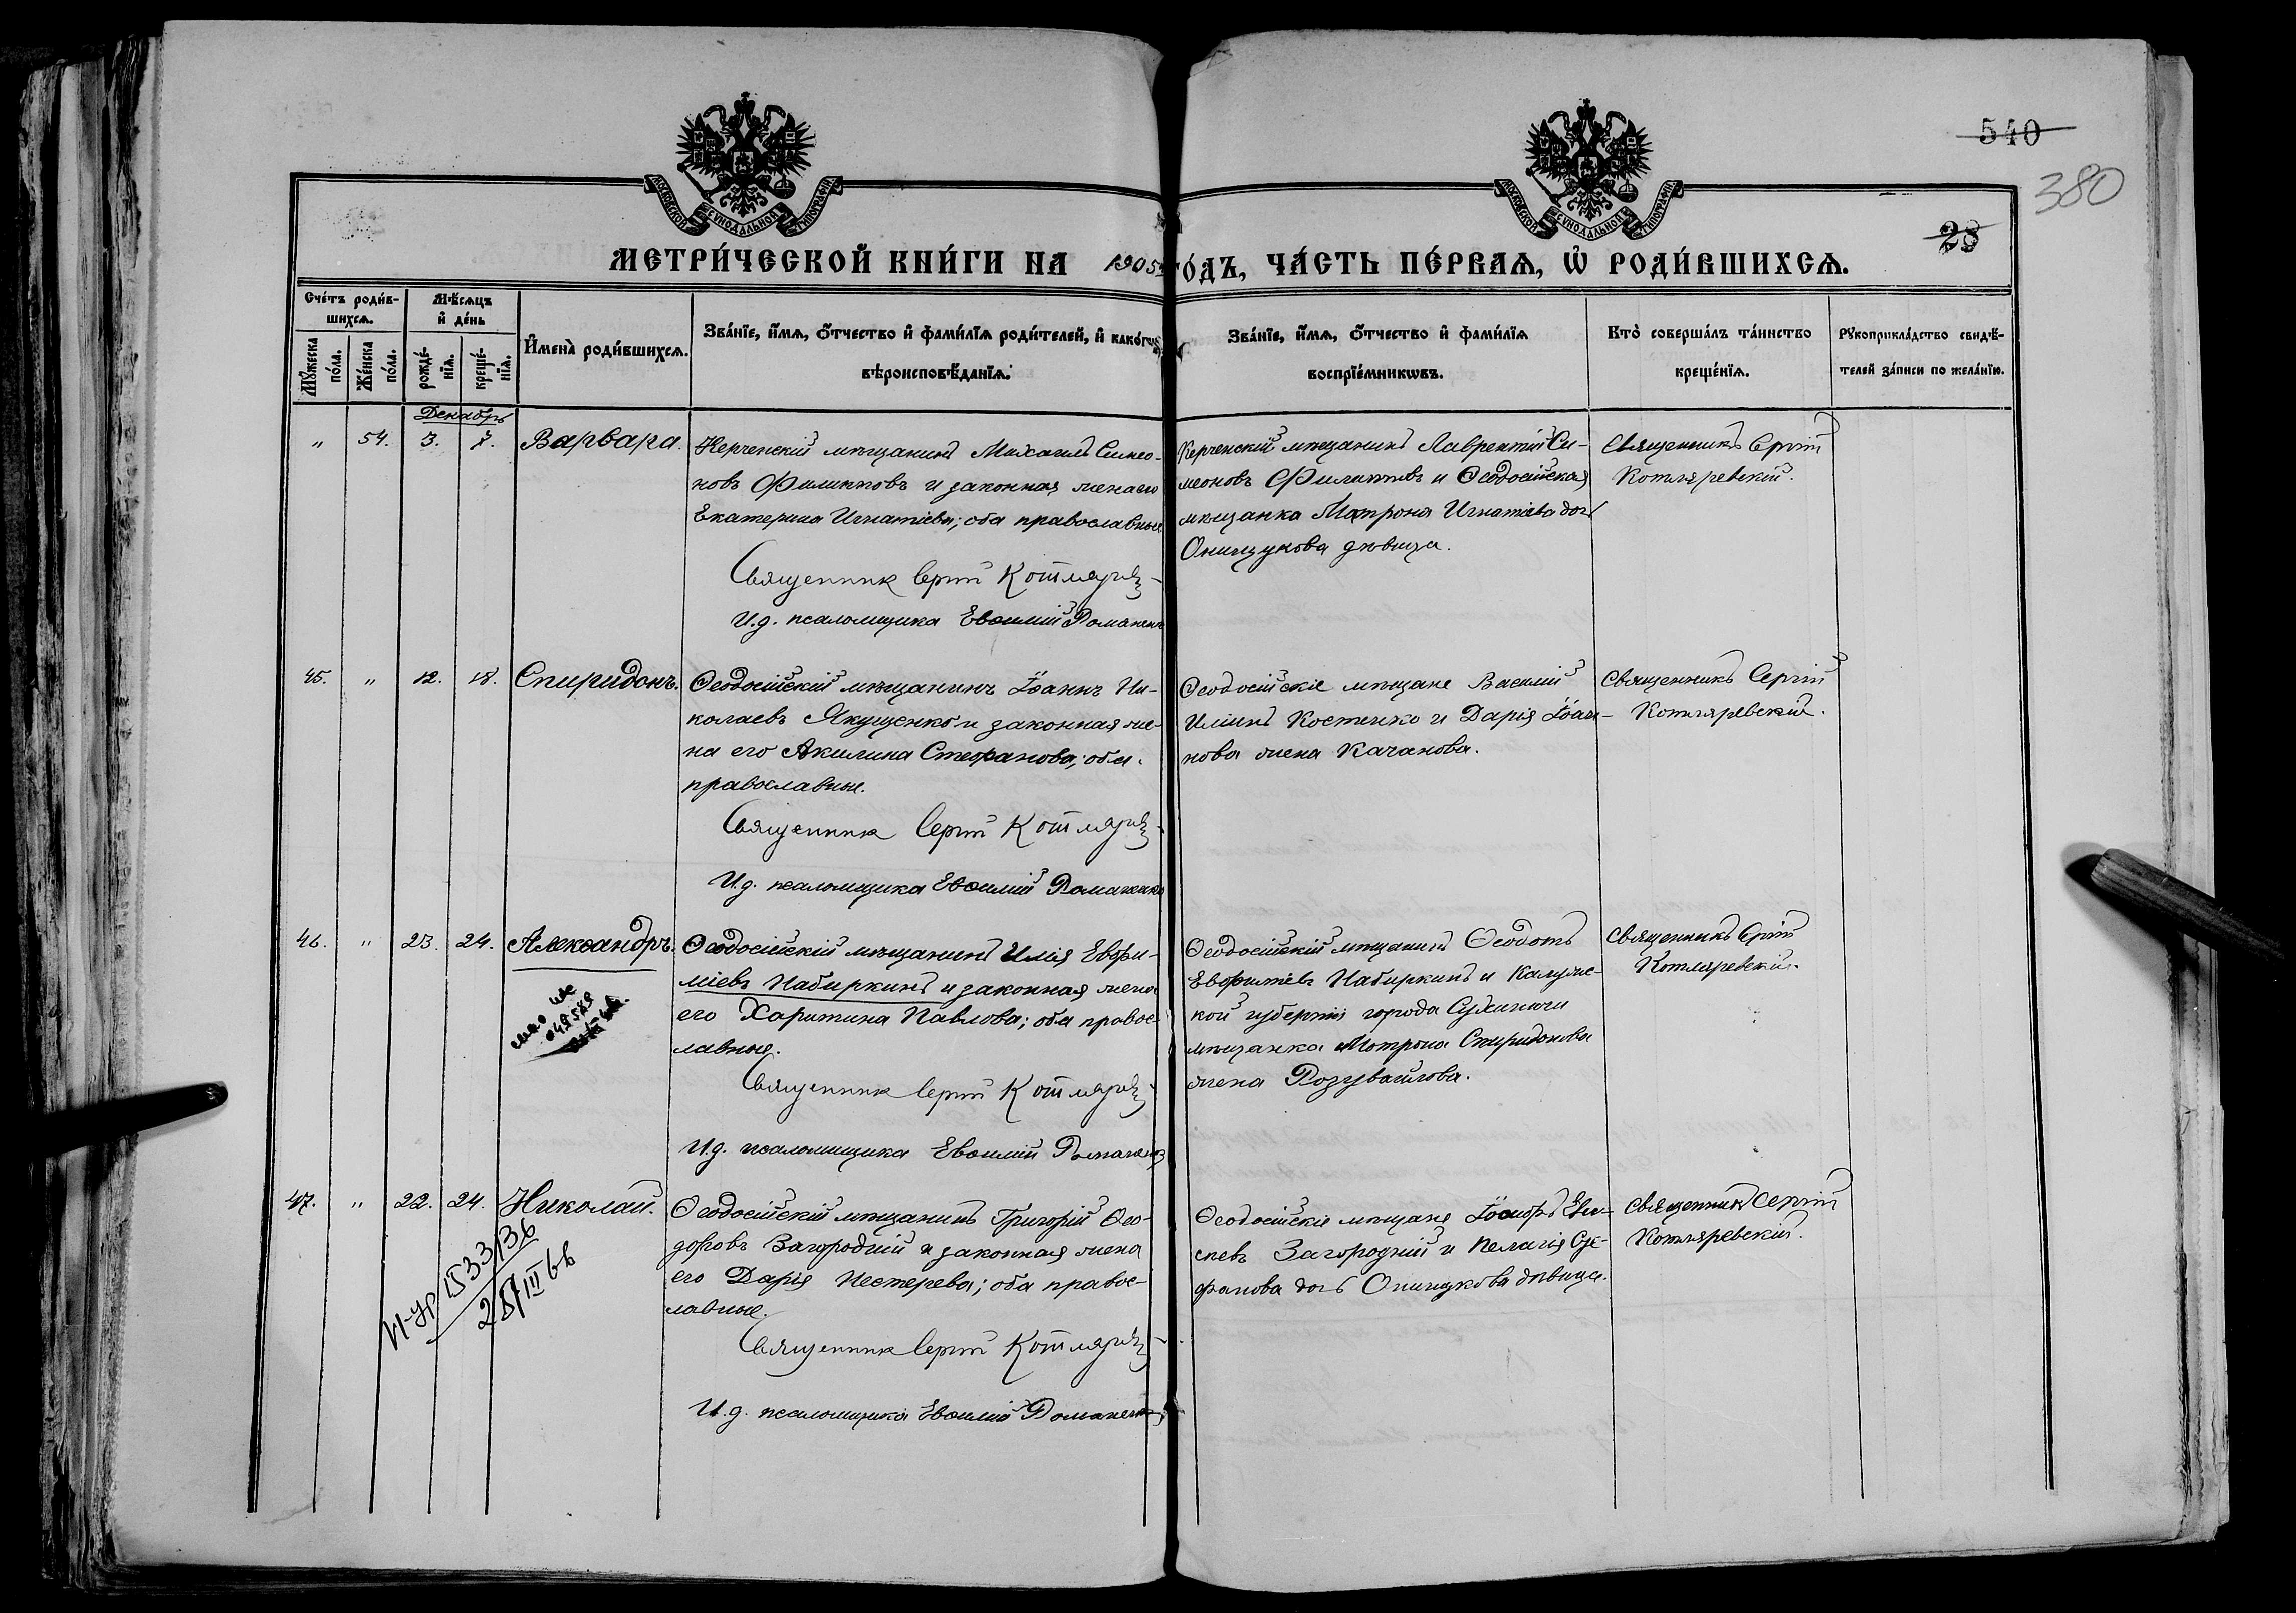 540
380
28
МОСКОВСКОЙ СѴНОДАЛЬНОЙ ТИПОГРАФІИ
МОСКОВСКОЙ СѴНОДАЛЬНОЙ ТИПОГРАФІИ
МЕТРИ́ЧЕСКОЙ КНИ́ГИ НА 1905 ГО́ДЪ, ЧА́СТЬ ПЕ́РВАѦ, Ѡ РОДИ́ВШИХСѦ.
Сче́тъ роди́в-
шихсѧ.
Мѣ́сѧцъ
и де́нь
Мꙋ́жеска по́ла.
Же́нска по́ла.
рожде́-
нїѧ.
креще́-
нїѧ.
И҆мена̀ роди́вшихсѧ.
Зва́нїе, и҆́мѧ, ѻ҆́тчество и҆ фами́лїѧ роди́телей, и҆ како́гѡ
вѣроисповѣ́данїѧ.
Зва́нїе, и҆́мѧ, ѻ҆́тчество и҆ фами́лїѧ
воспрїе́мникѡвъ.
Кто̀ соверша́лъ та́инство
креще́нїѧ.
Рꙋкоприкла́дство свидѣ́-
телей за́писи по жела́нїю.
Декабрь
" 54. 3. 7. Варвара.
Керченскій мѣщанинъ Михаилъ Симео-
новъ Филипповъ и законная жена его
Екатерина Игнатіева; оба православные
Священник Сергій Котляр
И.д. псаломщика Евѳимій Романенко
Керченскій мѣщанинъ Лаврентій Си-
меоновъ Филипповъ и Ѳеодосійская
мѣщанка Матрона Игнатіева дочь
Онищукова дѣвица.
Священникъ Сергій
Котляревскій.
45. " 12. 18. Спиридонъ.
Ѳеодосійскій мѣщанинъ Іоаннъ Ни-
колаевъ Якущенко и законная же-
на его Акилина Стефанова; оба
православные.
Священник Сергій Котляр
И.д. псаломщика Евѳимій Романенко
Ѳеодосійскіе мѣщане Василій
Иліинъ Костенко и Дарія Іоан-
нова жена Качанова.
Священникъ Сергій
Котляревскій.
46. " 23. 24. Александръ.
Ѳеодосійскій мѣщанинъ Илія Евфи-
міевъ Набиркинъ и законная жена
его Харитина Павлова; оба правос-
лавные.
Священник Сергій Котляр
И.д. псаломщика Евѳимій Романенко
Ѳеодосійскій мѣщанинъ Ѳеодотъ
Евфиміевъ Набиркинъ и Калужс-
кой губерніи города Сухиничи
мѣщанка Мотрона Спиридонова
жена Розувайлова.
Священникъ Сергій
Котляревскій.
47. " 22. 24. Николай.
И-УР 153313б
28/III 6
Ѳеодосійскій мѣщанинъ Григорій Ѳео-
доровъ Загородній и законная жена
его Дарія Нестерева; оба правос-
лавные.
Священник Сергій Котляр
И.д. псаломщика Евѳимій Романенко
Ѳеодосійскіе мѣщане Іосифъ
Загородній и Пелагія
фанова дочь Онищукова дѣвица.
Священникъ Сергій
Котляревскій.